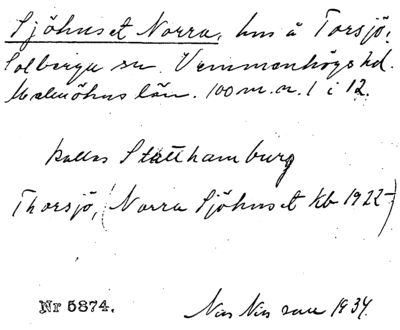 Sjöhuset Norra, hus å Torsjö,
Solberga sn. Vemmenhögs hd.
Malmöhus län. 100 m. n. 1 i 12.
kallas Statthamburg
Thorsjö, (Norra Sjöhuset kb 1922-)
Nr 5874.
Nils Nilsson 1934.